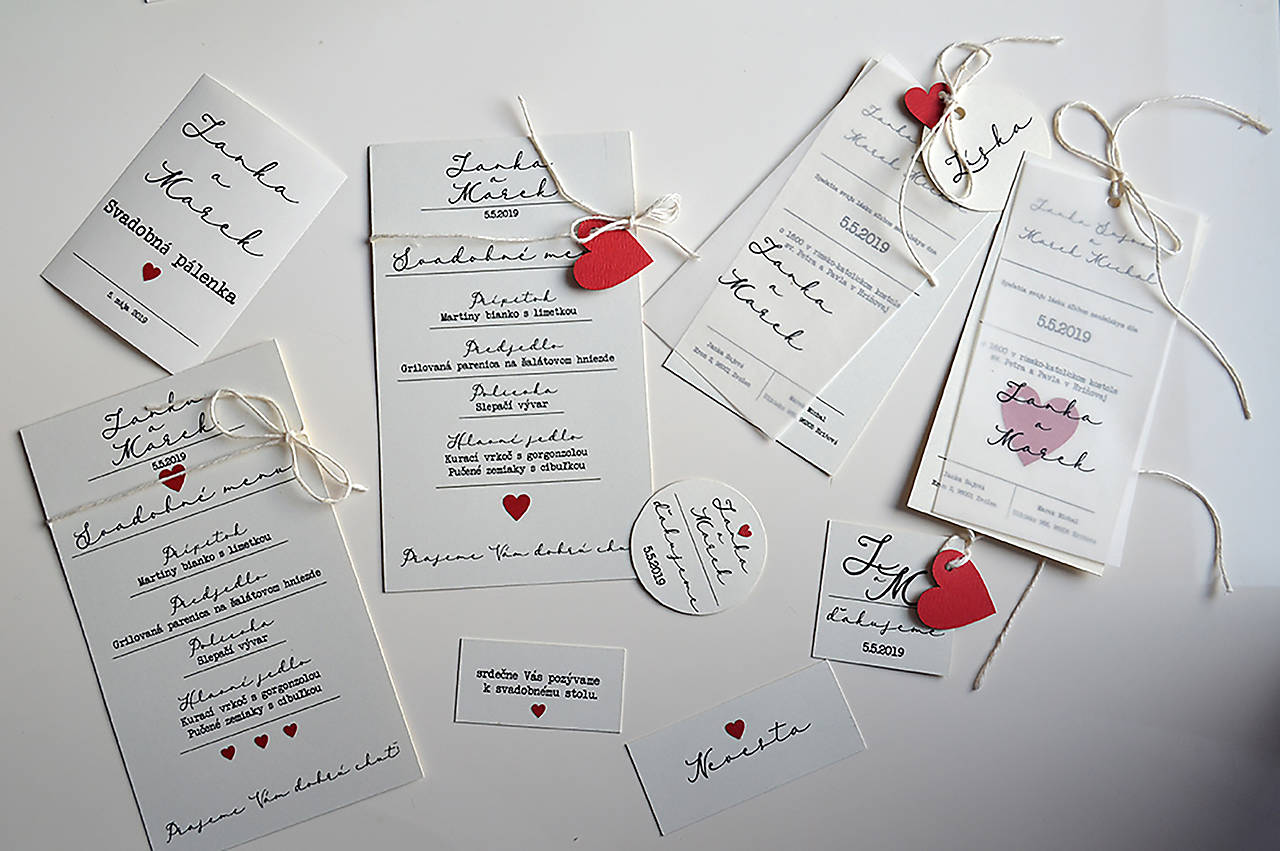 Janka
a
Marek
Svadobná pálenka
5. mája 2019
Janka
a
Marek
5.5.2019
Svadobné menu
Prípitok
Martiny bianko s limetkou
Predjedlo
Grilovaná parenica na šalátovom hniezde
Polievka
Slepačí vývar
Hlavné jedlo
Kurací vrkoč s gorgonzolou
Pučené zemiaky s cibuľkou
Prajeme Vám dobrú chuť
Janka
a
Marek
5.5.2019
Svadobné me
Prípitok
Martiny bianko s limetkou
Predjedlo
Grilovaná parenica na šalátovom hniezde
Polievka
Slepačí vývar
Hlavné jedlo
Kurací vrkoč s gorgonzolou
Pučené zemiaky s cibuľkou
Prajeme Vám dobrú chu
Janka
a
Marek
ďakujeme
5.5.2019
srdečne Vás pozývame
k svadobnému stolu.
Nevesta
J
a M
ďakujeme
5.5.2019
Janka
Marek
5.5.2019
o 1600 v rímsko-katolíckom kostole
sv. Petra a Pavla v Hriňovej
Janka
a
Marek
Janka
Marek Michal
5.5.2019
o 1600 v rímsko-katolíckom kostole
sv. Petra a Pavla v Hriňovej
Janka
a
Marek
Marek Michal